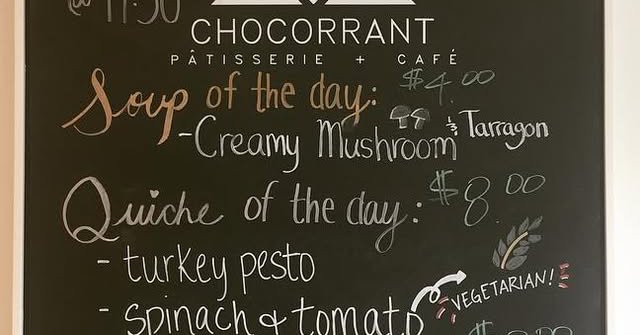 @ 11:30
CHOCORRANT
PÂTISSERIE + CAFÉ
Soup of the day: $4.00
- Creamy Mushroom & Tarragon
Quiche of the day: $8.00
- turkey pesto
- spinach & tomato
VEGETARIAN!